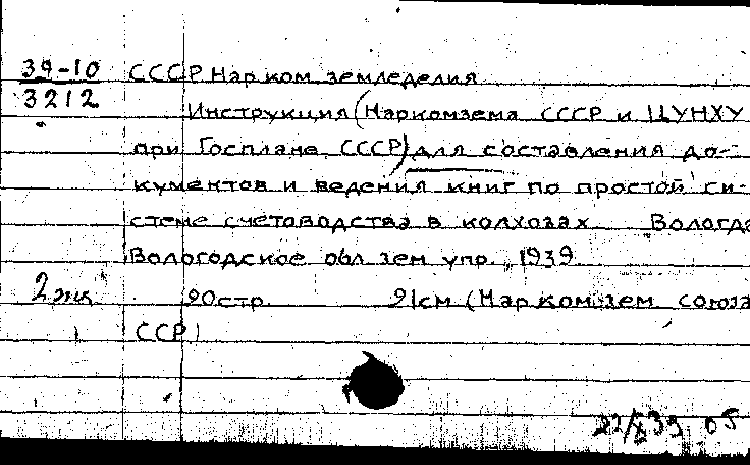 39-10 СССР Нар.ком.земледелия.
3212 Инструкция (Наркомзема СССР и ЦУНХУ
при Госплане СССР) для составления до-
кументов и ведения книг по простой си-
стеме счетоводства в колхозах. Вологда
Вологодское обл.зем.упр., 1939.
2 экз. 90стр. 21см. (Нар.ком.зем. союза
ССР)
22/X 39 05